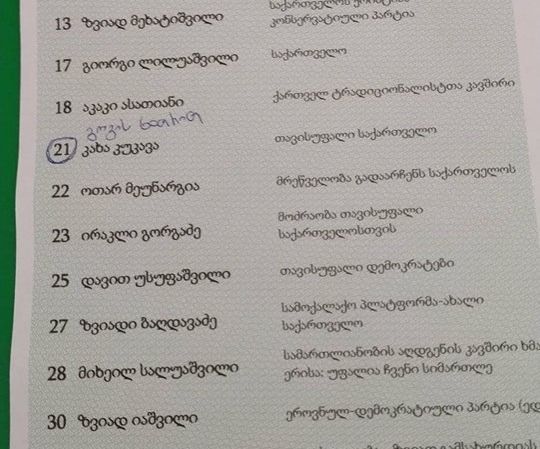 საქართველოს
13 ზვიად მეხატიშვილი კონსერვატიული პარტია
17 გიორგი ლილუაშვილი საქართველო
18 აკაკი ასათიანი ქართველ ტრადიციონალისტთა კავშირი
გოგის
21 კახა კუკავა თავისუფალი საქართველო
22 ოთარ მეუნარგია მრეწველობა გადაარჩენს საქართველოს
მოძრაობა თავისუფალი
23 ირაკლი გორგაძე საქართველოსთვის
25 დავით უსუფაშვილი თავისუფალი დემოკრატები
სამოქალაქო პლატფორმა-ახალი
27 ზვიადი ბაღდავაძე საქართველო
სამართლიანობის აღდგენის კავშირი ხმა
28 მიხეილ სალუაშვილი ერისა: უფალია ჩვენი სიმართლე
30 ზვიად იაშვილი ეროვნულ-დემოკრატიული პარტია (ედ